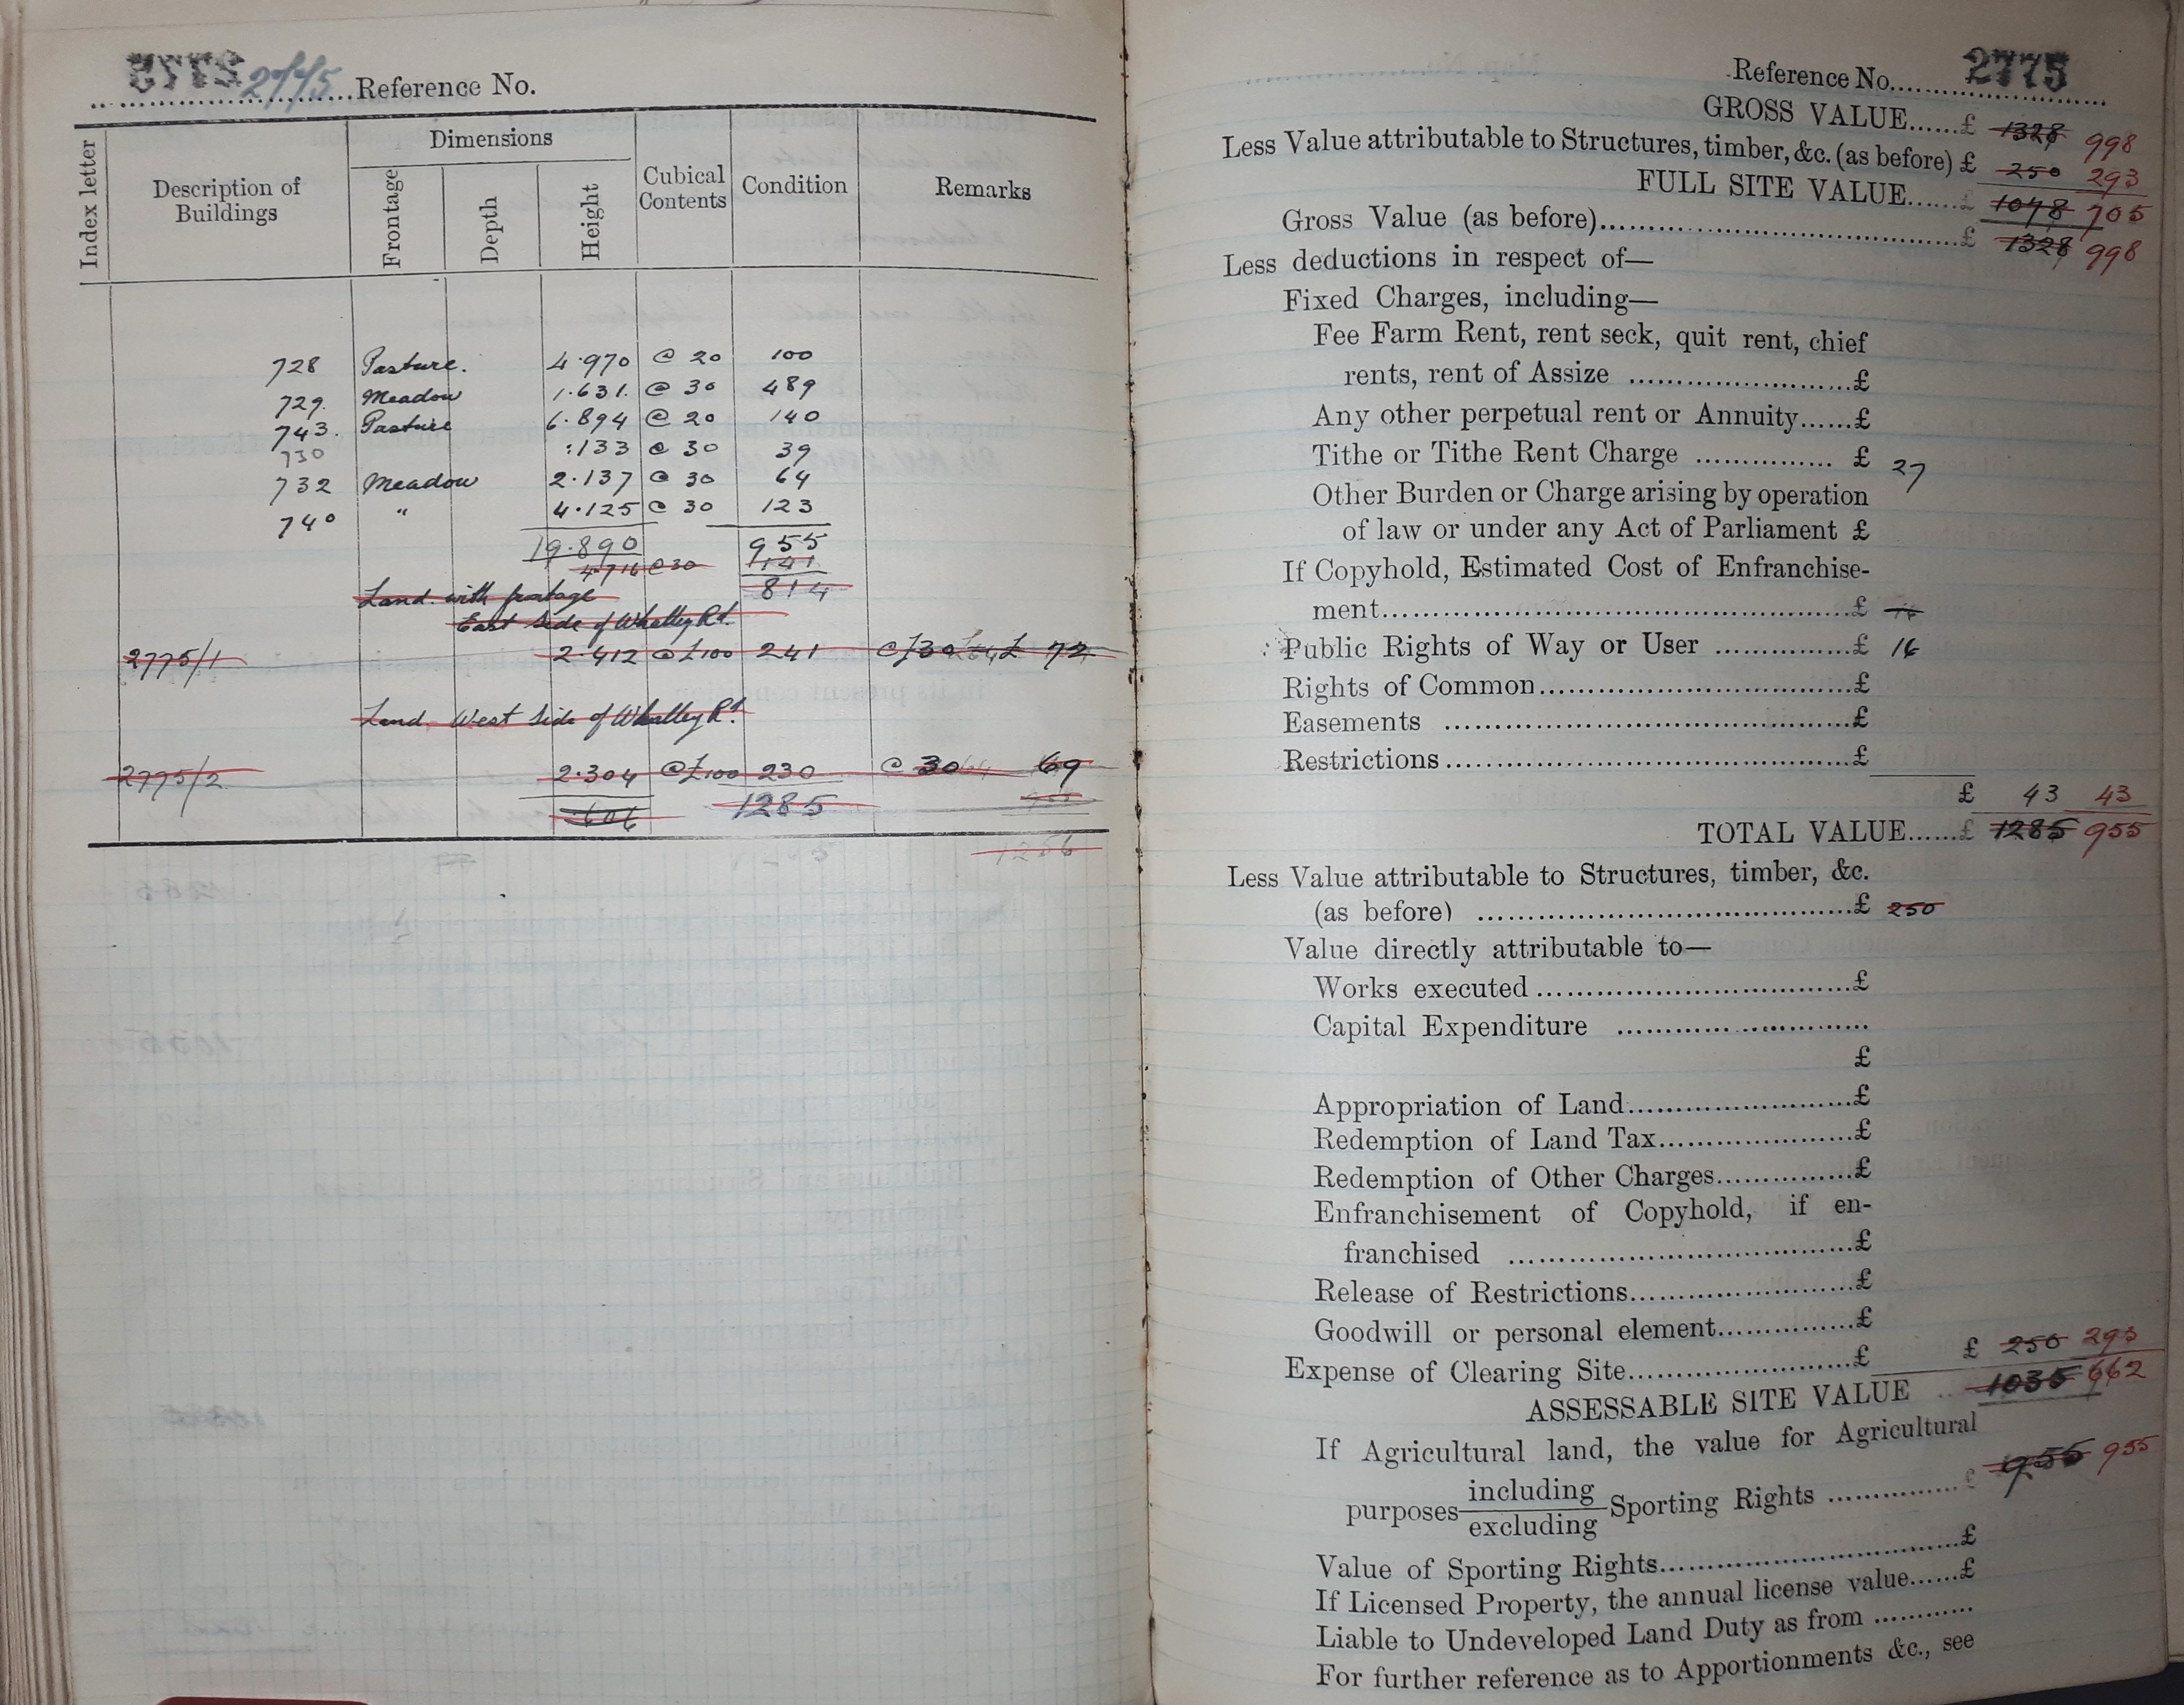 2775 2775 Reference No.
Index letter
Description of Buildings
Dimensions
Frontage
Depth
Height
Cubical Contents
Condition
Remarks
728 Pasture. 4.970 @ 20 100
729. Meadow 1.631. @ 30 489
743. Pasture 6.894 @ 20 140
730 .133 @ 30 39
732 Meadow 2.137 @ 30 64
740 " 4.125 @ 30 123
19.890 955
4.716 @ 30 141
814
Land with frontage
East side of Whalley Rd.
2775/1 2.412 @ £100 241 @ £30 £ 72
Land West side of Whalley Rd.
2775/2 2.304 @ £100 230 @ 30 69
1285
1256
Reference No. 2775
GROSS VALUE......£ 1328 998
Less Value attributable to Structures, timber, &c. (as before) £ 250 293
FULL SITE VALUE......£ 1078 705
Gross Value (as before)..........£ 1328 998
Less deductions in respect of—
Fixed Charges, including—
Fee Farm Rent, rent seck, quit rent, chief
rents, rent of Assize ..........£
Any other perpetual rent or Annuity......£
Tithe or Tithe Rent Charge .......... £ 27
Other Burden or Charge arising by operation
of law or under any Act of Parliament £
If Copyhold, Estimated Cost of Enfranchise-
ment..........£
Public Rights of Way or User ..........£ 16
Rights of Common..........£
Easements ..........£
Restrictions..........£
£ 43 43
TOTAL VALUE......£ 1285 955
Less Value attributable to Structures, timber, &c.
(as before) ..........£ 250
Value directly attributable to—
Works executed..........£
Capital Expenditure ..........
£
Appropriation of Land..........£
Redemption of Land Tax..........£
Redemption of Other Charges..........£
Enfranchisement of Copyhold, if en-
franchised ..........£
Release of Restrictions..........£
Goodwill or personal element..........£
Expense of Clearing Site..........£ £ 250 293
ASSESSABLE SITE VALUE .. 1035 662
If Agricultural land, the value for Agricultural
purposes including excluding Sporting Rights .......... £ 955 955
Value of Sporting Rights..........£
If Licensed Property, the annual license value......£
Liable to Undeveloped Land Duty as from ............
For further reference as to Apportionments &c., see